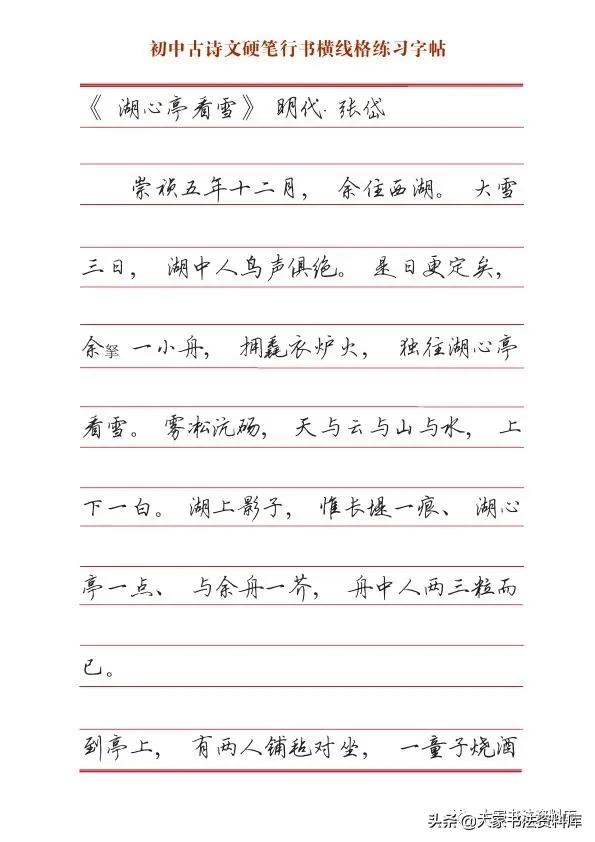 初中古诗文硬笔行书横线格练习字帖
《 湖心亭看雪》 明代·张岱
崇祯五年十二月， 余住西湖。 大雪
三日， 湖中人鸟声俱绝。 是日更定矣，
余拏 一小舟， 拥毳衣炉火， 独往湖心亭
看雪。 雾凇沆砀， 天与云与山与水， 上
下一白。 湖上影子， 惟长堤一痕、 湖心
亭一点、 与余舟一芥， 舟中人两三粒而
已。
到亭上， 有两人铺毡对坐， 一童子烧酒
大家书法资料库
头条@大家书法资料库